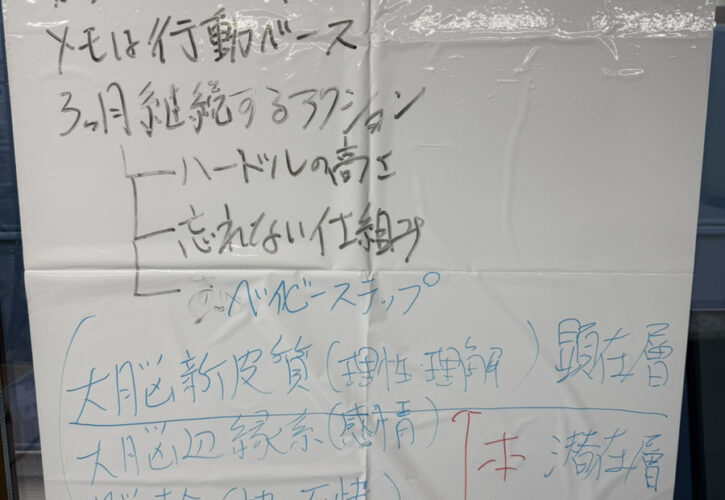 メモは行動ベース
3ヶ月継続するアクション
ハードルの高さ
忘れない仕組み
ベイビーステップ
大脳新皮質(理性理解) 顕在層
大脳辺縁系(感情) 本 潜在層
脳幹(快不快)